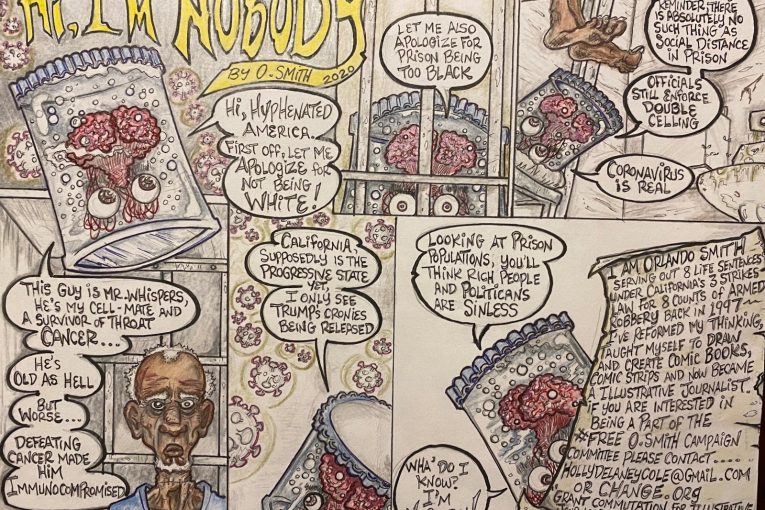 Hi, I'm Nobody
By O. Smith 2020
Hi, Hyphenated
America.
First off, let me
apologize for
not being
white!
Let me also
apologize for
prison being
too black
Reminder, there
is absolutely no
such thing as
social distance
in prison
Officials
still enforce
double
celling
Coronavirus
is real
This guy is Mr. Whispers,
he's my cell-mate and
a survivor of throat
cancer...
He's
old as hell
But
worse...
Defeating
cancer made
him
immunocompromised
California,
supposedly is the
progressive state
yet,
I only see
Trump's cronies
being released
Looking at prison
populations, you'll
think rich people
and politicians
are sinless
Wha' do I
know?
I'm
I am Orlando Smith
serving out 8 life sentences
under California's 3 strikes
law for 8 counts of armed
robbery back in 1997~
I've reformed my thinking,
taught myself to draw
and create comic books,
comic strips and now became
a illustrative journalist.
If you are interested in
being a part of the
#Free O. Smith Campaign
Committee please contact.....
hollydelaneycole@gmail.com
or change.org
"Grant commutation for illustrative